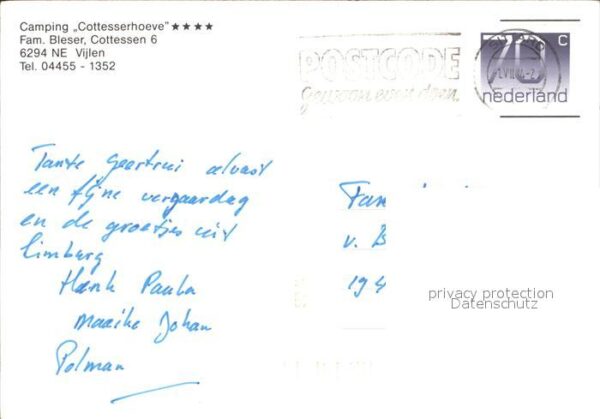 Camping „Cottesserhoeve" ★★★★
Fam. Bleser, Cottessen 6
6294 NE Vijlen
Tel. 04455 - 1352
POSTCODE
gewoon even doen
70 C
nederland
Tante Geertrui alvast
een fijne vergaardag
en de groetjes uit
limburg
Henk Paula
Maaike Johan
Polman
Fam
v. B
194
privacy protection
Datenschutz